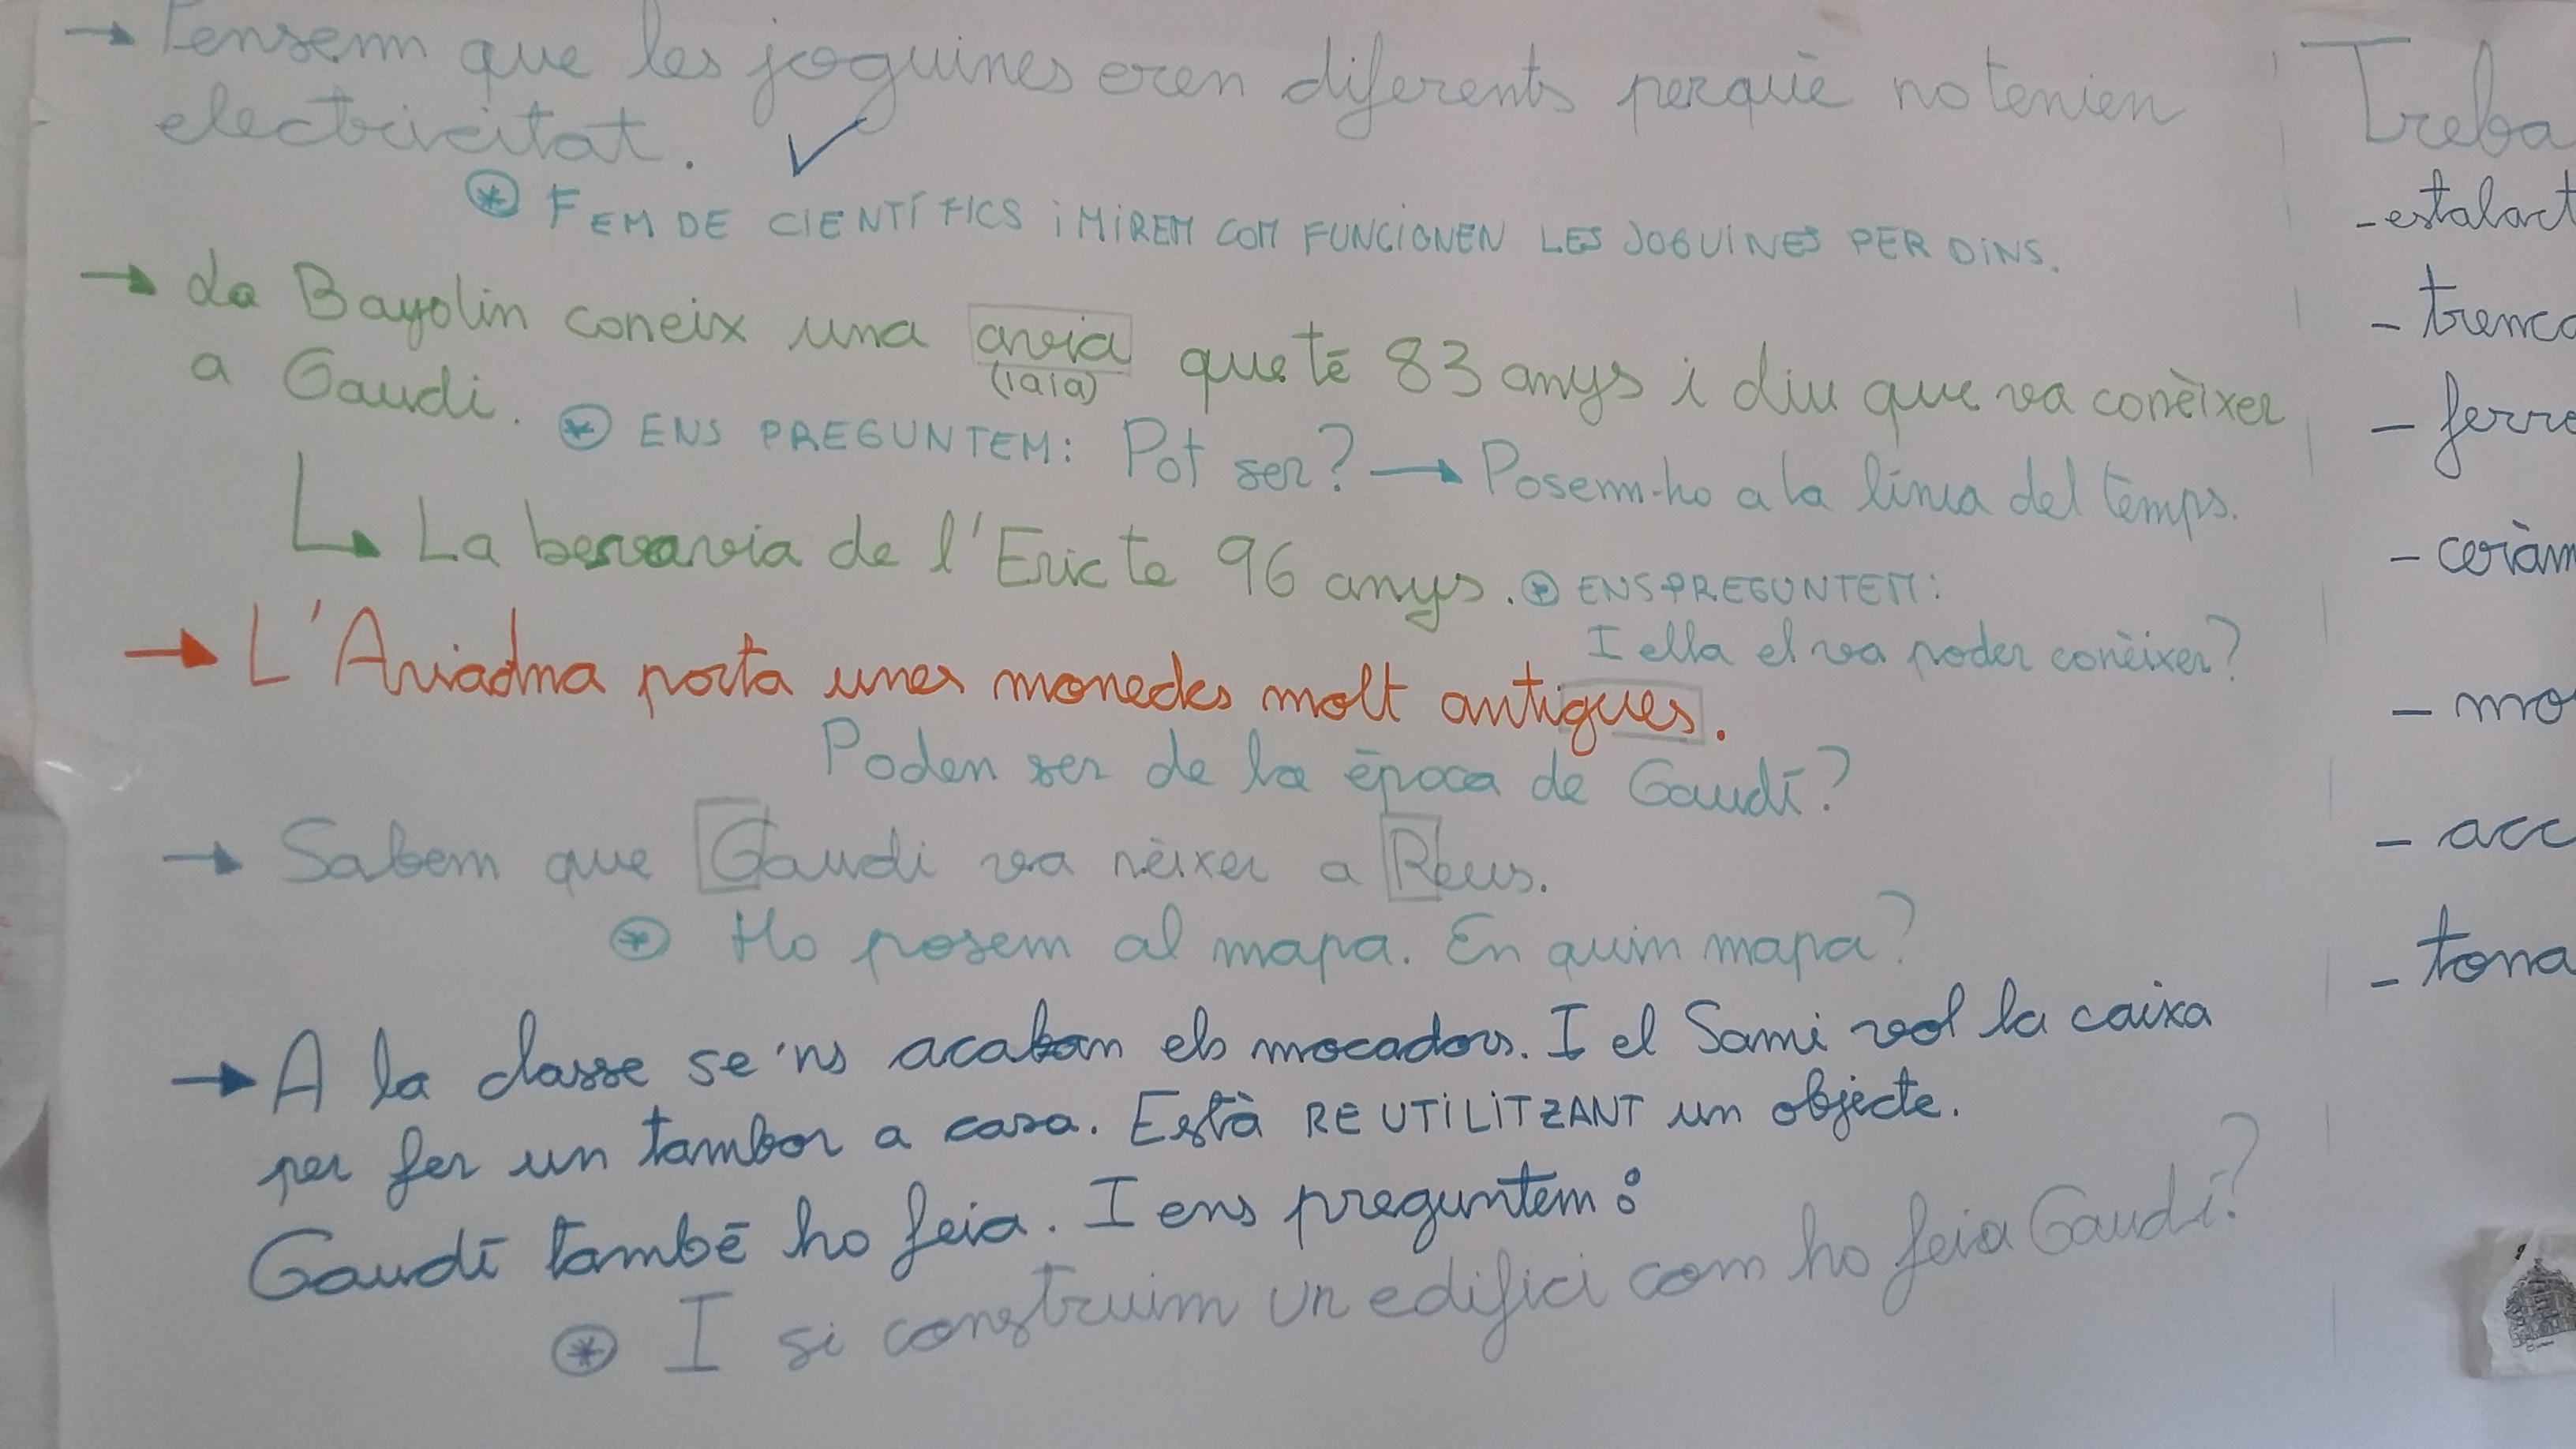 → Pensem que les joguines eren diferents perquè no tenien
electricitat. ✓
* FEM DE CIENTÍFICS i MIREM COM FUNCIONEN LES JOGUINES PER DINS.
→ La Bayolin coneix una avia que té 83 anys i diu que va conèixer
(iaia)
a Gaudi. * ENS PREGUNTEM: Pot ser? → Posem-ho a la línia del temps.
↳ La besavia de l'Eric te 96 anys. * ENS PREGUNTEM:
I ella el va poder conèixer?
→ L'Ariadna porta unes monedes molt antigues.
Poden ser de la època de Gaudí?
→ Sabem que Gaudi va nèixer a Reus.
* Ho posem al mapa. En quin mapa?
→ A la classe se'ns acaban els mocadors. I el Sami vol la caixa
per fer un tambor a casa. Està REUTILITZANT un objecte.
Gaudí també ho feia. I ens preguntem:
* I si construim un edifici com ho feia Gaudí?
Treba
- estalact
- trenca
- ferro
- ceràm
- mo
- acc
- tona